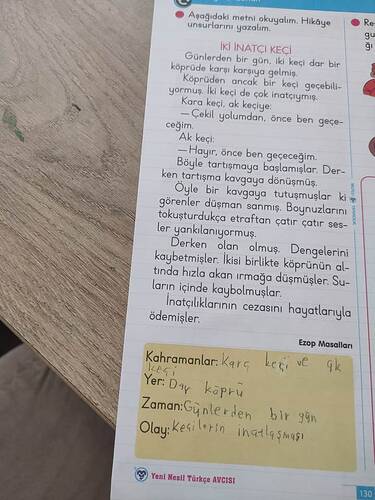 Aşağıdaki metni okuyalım. Hikâye
unsurlarını yazalım.
İKİ İNATÇI KEÇİ
Günlerden bir gün, iki keçi dar bir
köprüde karşı karşıya gelmiş.
Köprüden ancak bir keçi geçebili-
yormuş. İki keçi de çok inatçıymış.
Kara keçi, ak keçiye:
— Çekil yolumdan, önce ben geçe-
ceğim.
Ak keçi:
— Hayır, önce ben geçeceğim.
Böyle tartışmaya başlamışlar. Der-
ken tartışma kavgaya dönüşmüş.
Öyle bir kavgaya tutuşmuşlar ki
görenler düşman sanmış. Boynuzlarını
tokuşturdukça etraftan çatır çatır ses-
ler yankılanıyormuş.
Derken olan olmuş. Dengelerini
kaybetmişler. İkisi birlikte köprünün al-
tında hızla akan ırmağa düşmüşler. Su-
ların içinde kaybolmuşlar.
İnatçılıklarının cezasını hayatlarıyla
ödemişler.
Ezop Masalları
Kahramanlar: Kara keçi ve ak
keçi
Yer: Dar köprü
Zaman: Günlerden bir gün
Olay: Keçilerin inatlaşması
Yeni Nesil Türkçe AVCISI
130
Re
gu
ğı